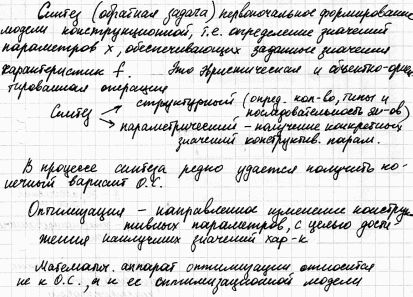 Синтез (обратная задача) первоначальное формирование
модели конструкционной, т.е. определение значений
параметров x, обеспечивающих заданные значения
характеристик f. Это эвристическая и объектно-ориен-
тированная операция
структурный (опред. кол-во, типы и
Синтез последовательность эл-ов)
параметрический - получение конкретных
значений конструктив. парам.
В процессе синтеза редко удается получить ко-
нечный вариант О.С.
Оптимизация - направленное изменение констру
тивных параметров, с целью дости-
жения наилучших значений хар-к
Математич. аппарат оптимизации относится
не к О.С., а к ее оптимизационной модели